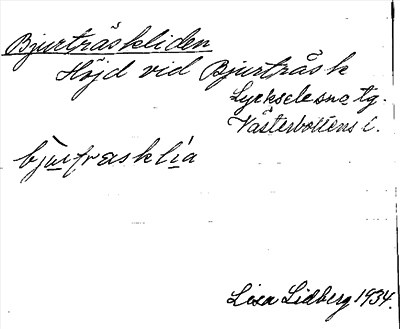 Bjurträskliden
Höjd vid Bjurträsk
Lycksele sn
Västerbottens l.
bjurtrasklia
Lisa Lidberg 1934.